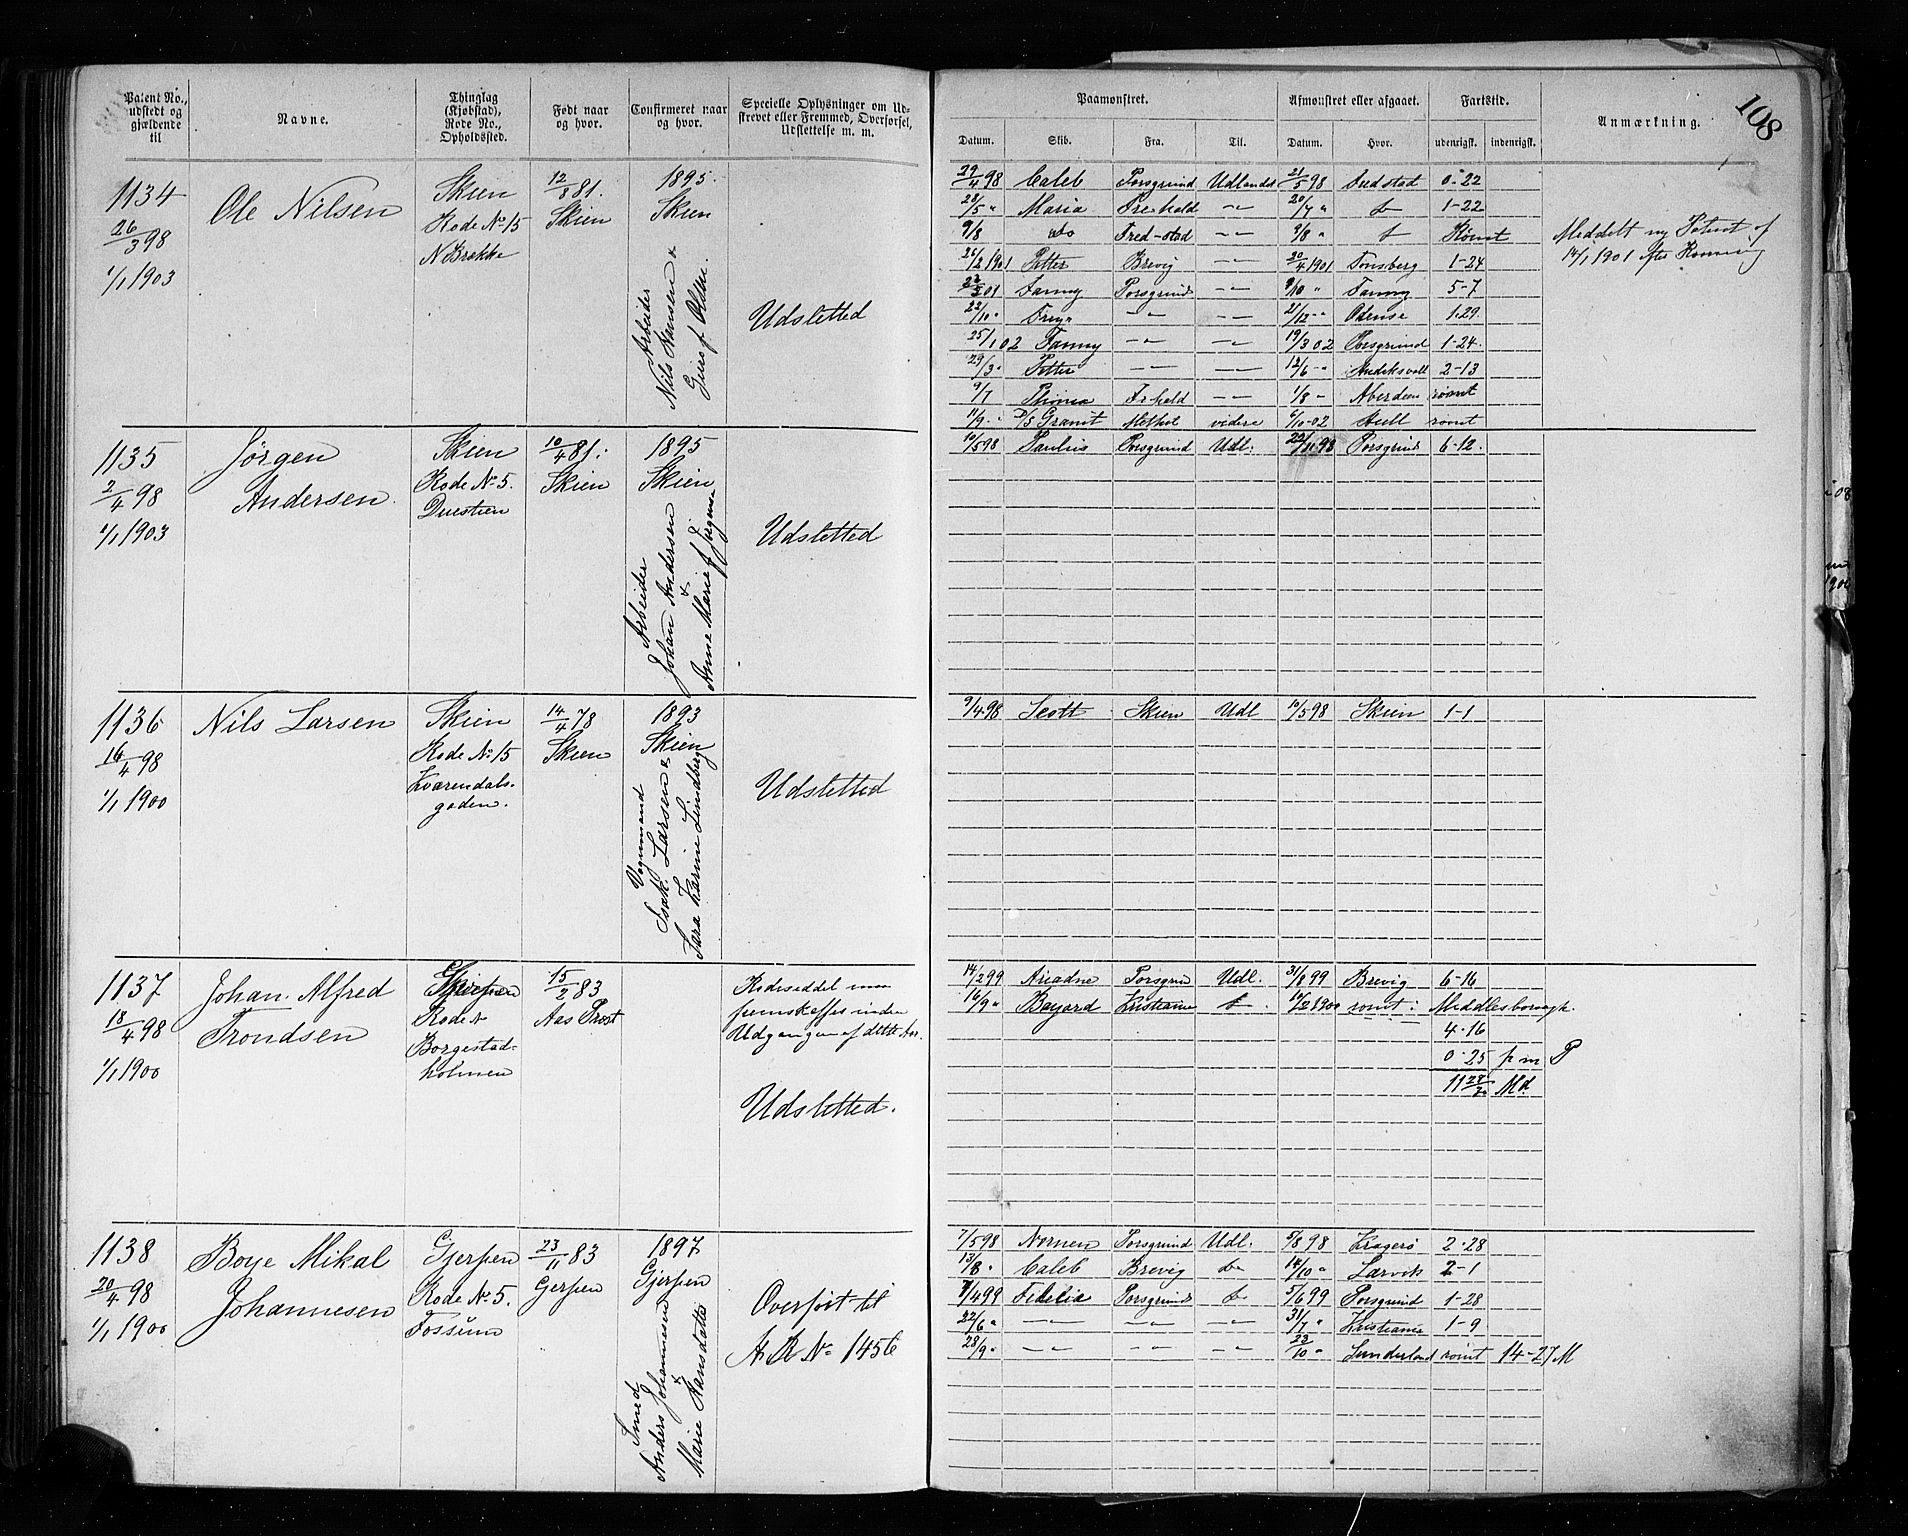 108
Patent No., udstedt og gjældende til
Navne.
Thinglag (Kjøbstad), Rode No., Opholdssted.
Født naar og hvor.
Confirmeret naar og hvor.
Specielle Oplysninger om Udskrevet eller Fremmed, Overførsel, Udslettelse m. m.
Paamønstret.
Afmønstret eller afgaaet.
Fartstid.
Anmærkning.
Datum. Skib. Fra. Til. Datum. Hvor. udenrigst. indenrigst.
1134
26/3 98
1/1 1903
Ole Nilsen
Skien
Rode No 15
N Brekke
12/8 81.
Skien
1895.
Skien
Arbeider
Nils Hansen &
Gurof Olsen.
Udsletted
29/4 98 Caleb Porsgrund Udlandet 21/5 98 Fredstad 0-22
28/5 " Maria Fre-hald -"- 20/7 " 1-22
9/8 do Fred-stad -"- 9/8 " Rømt
26/2 1901 Petter Brevig -"- 20/4 1901 Tønsberg 1-24
22/5 01 Fanny Porsgrund -"- 9/10 " Fanny 5-7
22/10 " Freya -"- -"- 21/12 -" Odense 1.29.
25/1 02 Fanny -"- -"- 19/3 02 Porsgrund 1-24.
29/3 " Petter -"- -"- 12/6 -" 2-13
9/7 Frhald -"- 1/8 - Aberdeen rømt
11/9 - D/S Granit Methil videre 6/10-02 Hull rømt
Meddelt ny Patent af
14/1 1901 efter Rømning
1135
2/4 98
1/1 1903
Jørgen
Andersen.
Skien
Rode No 5.
Duestien
10/4 81.
Skien
1895
Skien
Arbeider
Johan Andersen
&
Anne Marie f Jørgens
Udslettet
10/5 98 Paulus Porsgrund Udl: 22/11-98 Porsgrund 6-12.
1136
16/4 98
1/1 1900
Nils Larsen
Skien
Rode No 15
Kværndals-
gaden.
14/4 78
Skien
1893
Skien
Vognmand
Isak Larsen &
Sara Karine Lundberg
Udslettet
9/4-98 Scott Skien Udl 10/5 98 Skien 1-1
1137
18/4 98
1/1 1900
Johan Alfred
Trondsen
Gjerpen
Rode No
Borgestad-
holmen
15/2 83
Aas Prest
Rodeseddel maa
fremskaffes inden
Udgangen af dette Aar.
Udslettet.
14/2 99 Ariadne Porsgru Udl. 31/8 99 Brevig 6-16
16/9 " Bayard Kristiania 10/2 1900 rømt: Middlesborough.
4-16
0-25 p m P
11 27/30 Md.
1138
20/4 98
1/1 1900
Boye Mikal
Johannesen
Gjerpen
Rode No 5.
Fossum
23/11 83
Gerpen
1897
Gjerpen
Smed
Anders Johannesen
&
Marie Hansdatter
Overført til
A R No 1456
7/5 98 Nornen Porsgrund Udl. 5/8 98 Kragerø 2-28
13/8 " Caleb Brevig do 14/10 " Larvik 2-1
4/4 99 Fidelia Porsgrund 5/6 99 Porsgrund 1-28
22/6 " -"- -"- -"- 31/7 " Kristiania 1-9
28/9 " -"- -"- -"- 22/10 " Sunderland rømt 14-27 M